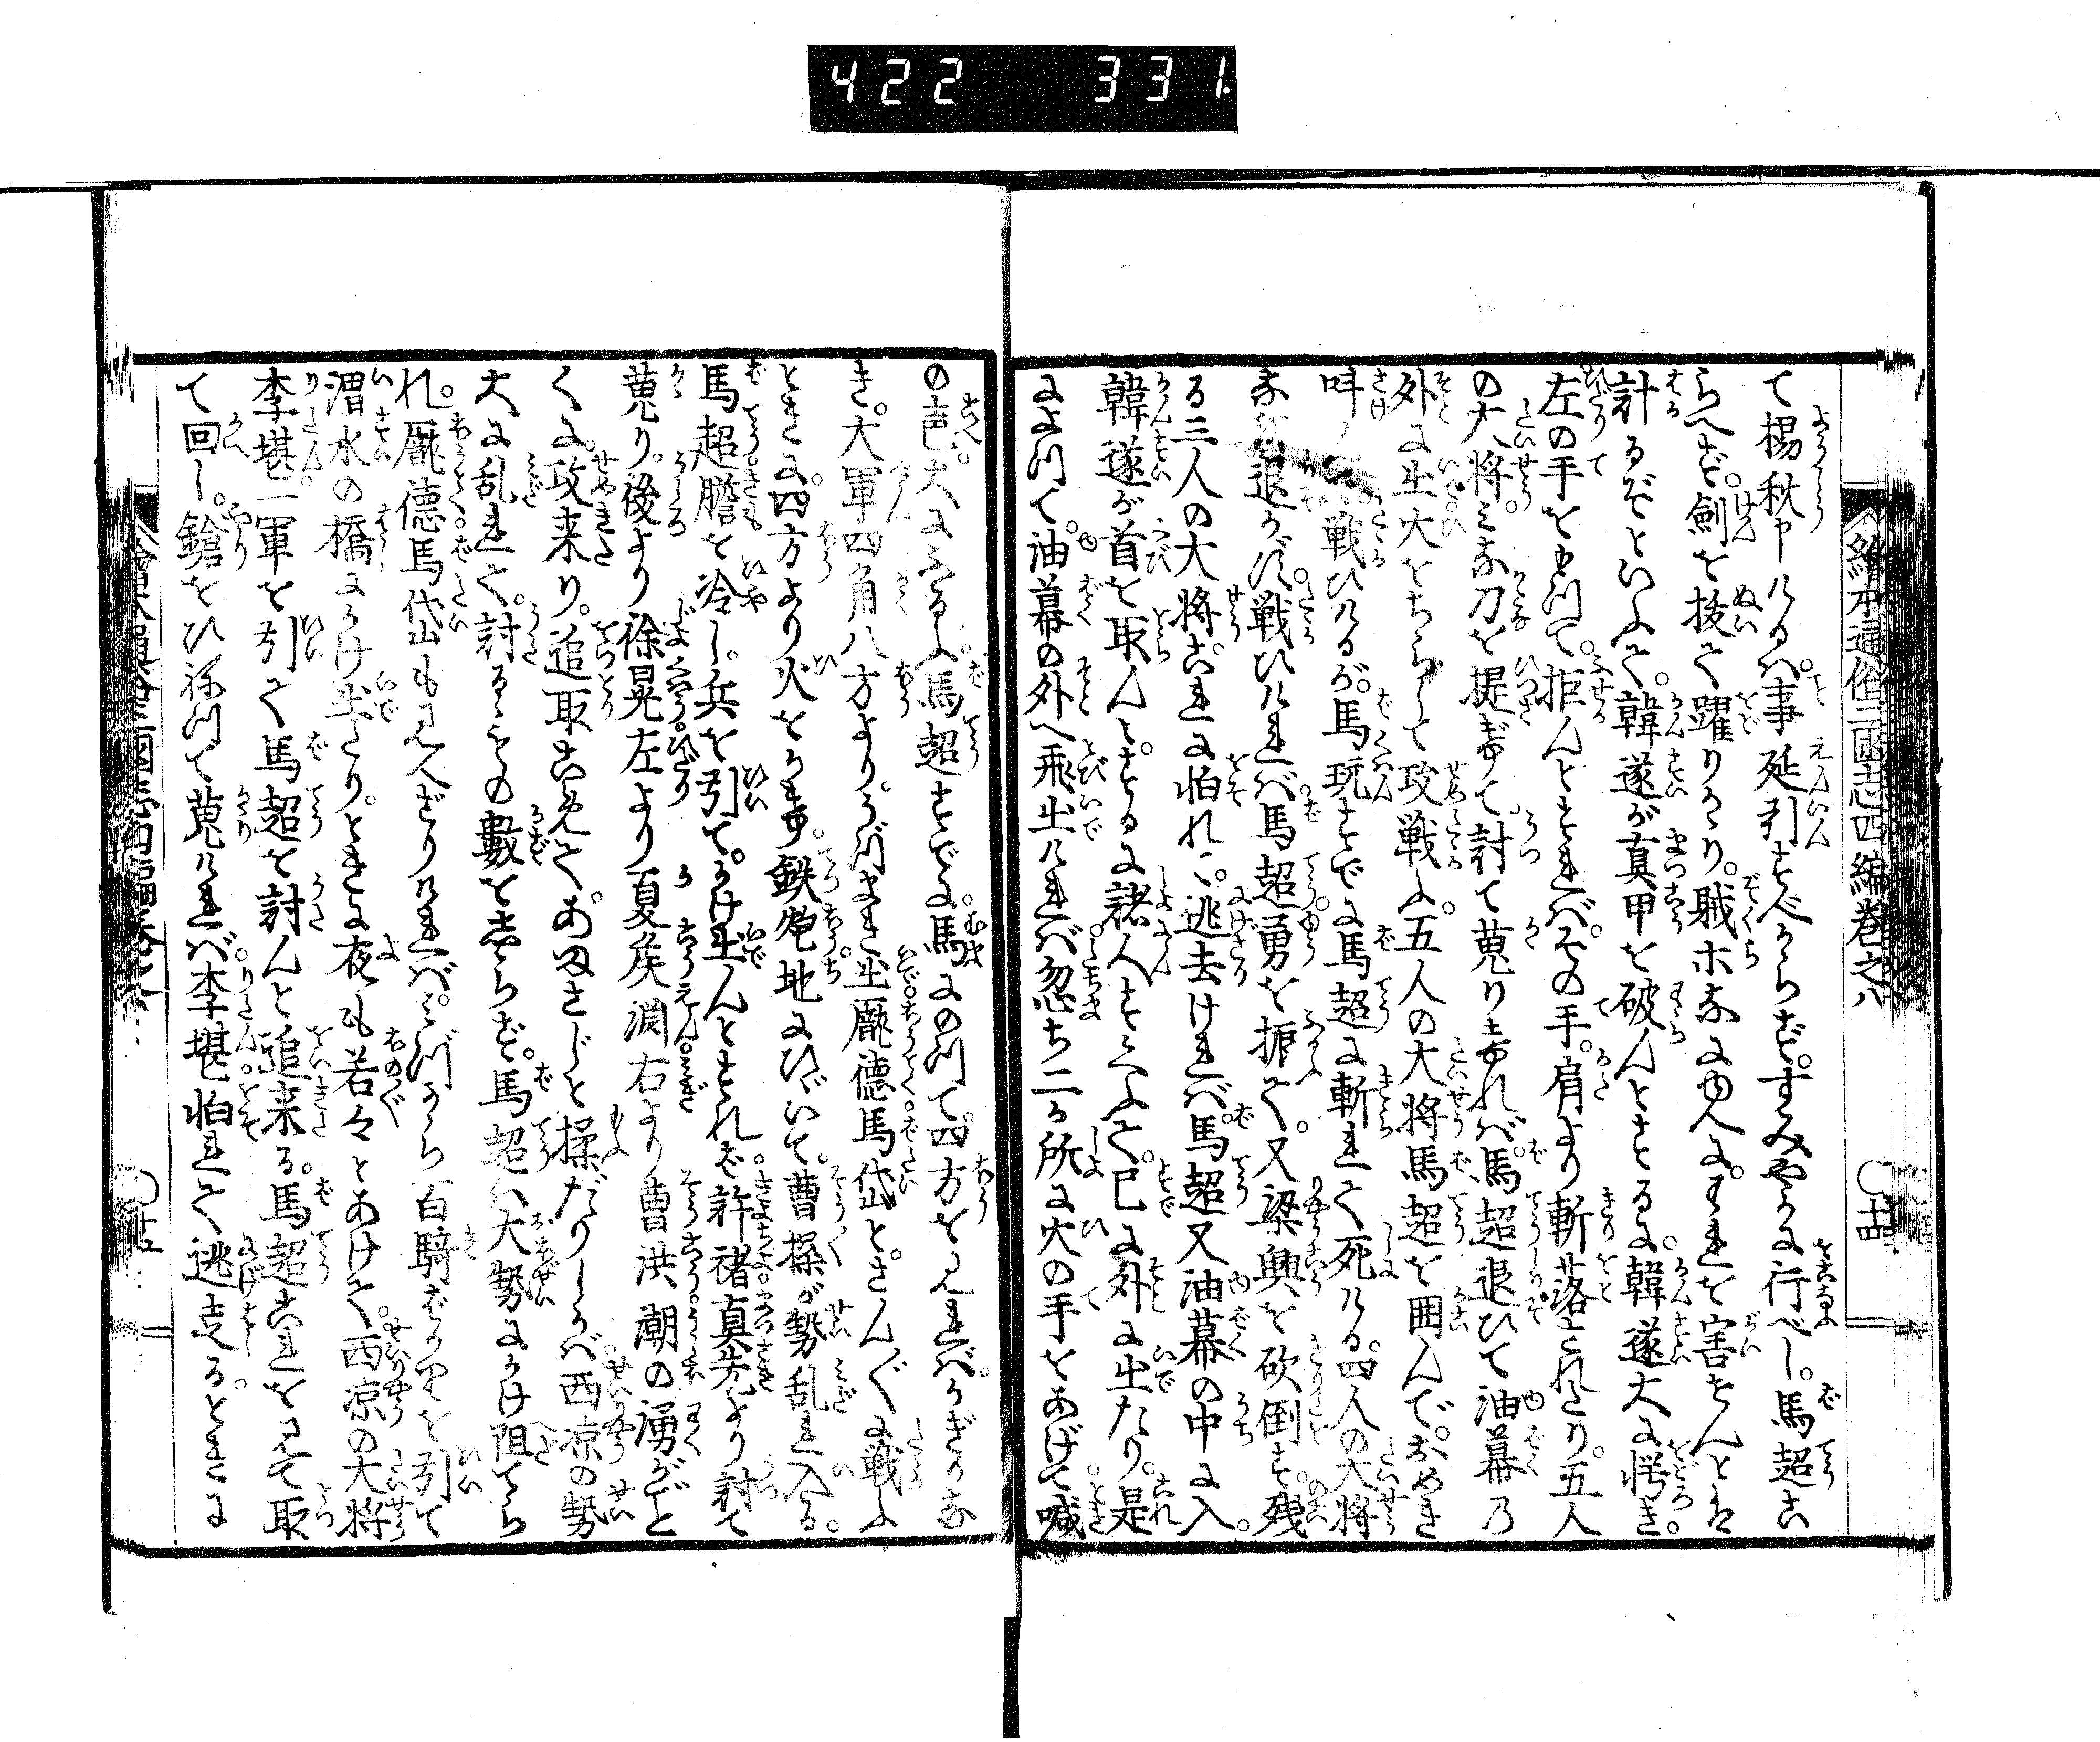 422 331.
繪本通俗三國志四編卷之八 〇十四
て楊秋申けるハ。事延引すべからず。すみやかに行べし。馬超こ
らへず。劍を抜て躍りかゝり。賊ホなにゆへに。われを害せんとは
計るぞといふて。韓遂が真甲を破んとするに。韓遂大に愕き。
左の手をもつて。拒んとすれば。その手。肩より斬落されたり。五人
の大将。みな刀を提げて。討て蒐りければ。馬超退ひて油幕の
外に出火をちらして攻戦ふ。五人の大将馬超を囲んで。おめき
叫んで戦ひけるが。馬玩すでに馬超に斬れて死ける。四人の大将
なほ退かず。戦ひければ馬超勇を振て。又梁興を砍倒す。残
る三人の大将。これに怕れ。逃去ければ。馬超又油幕の中に入。
韓遂が首を取んとするに諸人すくふて。已に外に出たり。是
によつて。油幕の外へ飛出ければ忽ち二か所に火の手をあげて喊
の声。大にふるふ。馬超すでに。馬にのつて。四方をみれば。かぎりな
き。大軍四角八方より。うづまき出龐徳馬岱と。さん〴〵に戦ふ
ときに。四方より火をかけ。鉄炮地にひゞいて。曹操が勢乱れ入る。
馬超膽を冷し。兵を引て。かけ出んとすれば。許褚真先より討て
蒐り。後より徐晃左より夏侯淵右より曹洪潮の湧がごと
くに。攻来り。追取こめて。あまさじと揉だりしかば西凉の勢
大に乱れて。討るゝもの數を志らず。馬超ハ大勢にかけ阻てら
れ。龐徳馬岱もみへざりければ。みづから百騎ばかりを引て
渭水の橋にかけ出たり。ときに夜も若々とあけて。西凉の大将
李堪一軍を引て馬超を討んと追来る。馬超これをみて取
て回し。鎗をひねつて蒐ければ。李堪怕れて逃走る。ときに
〇十五